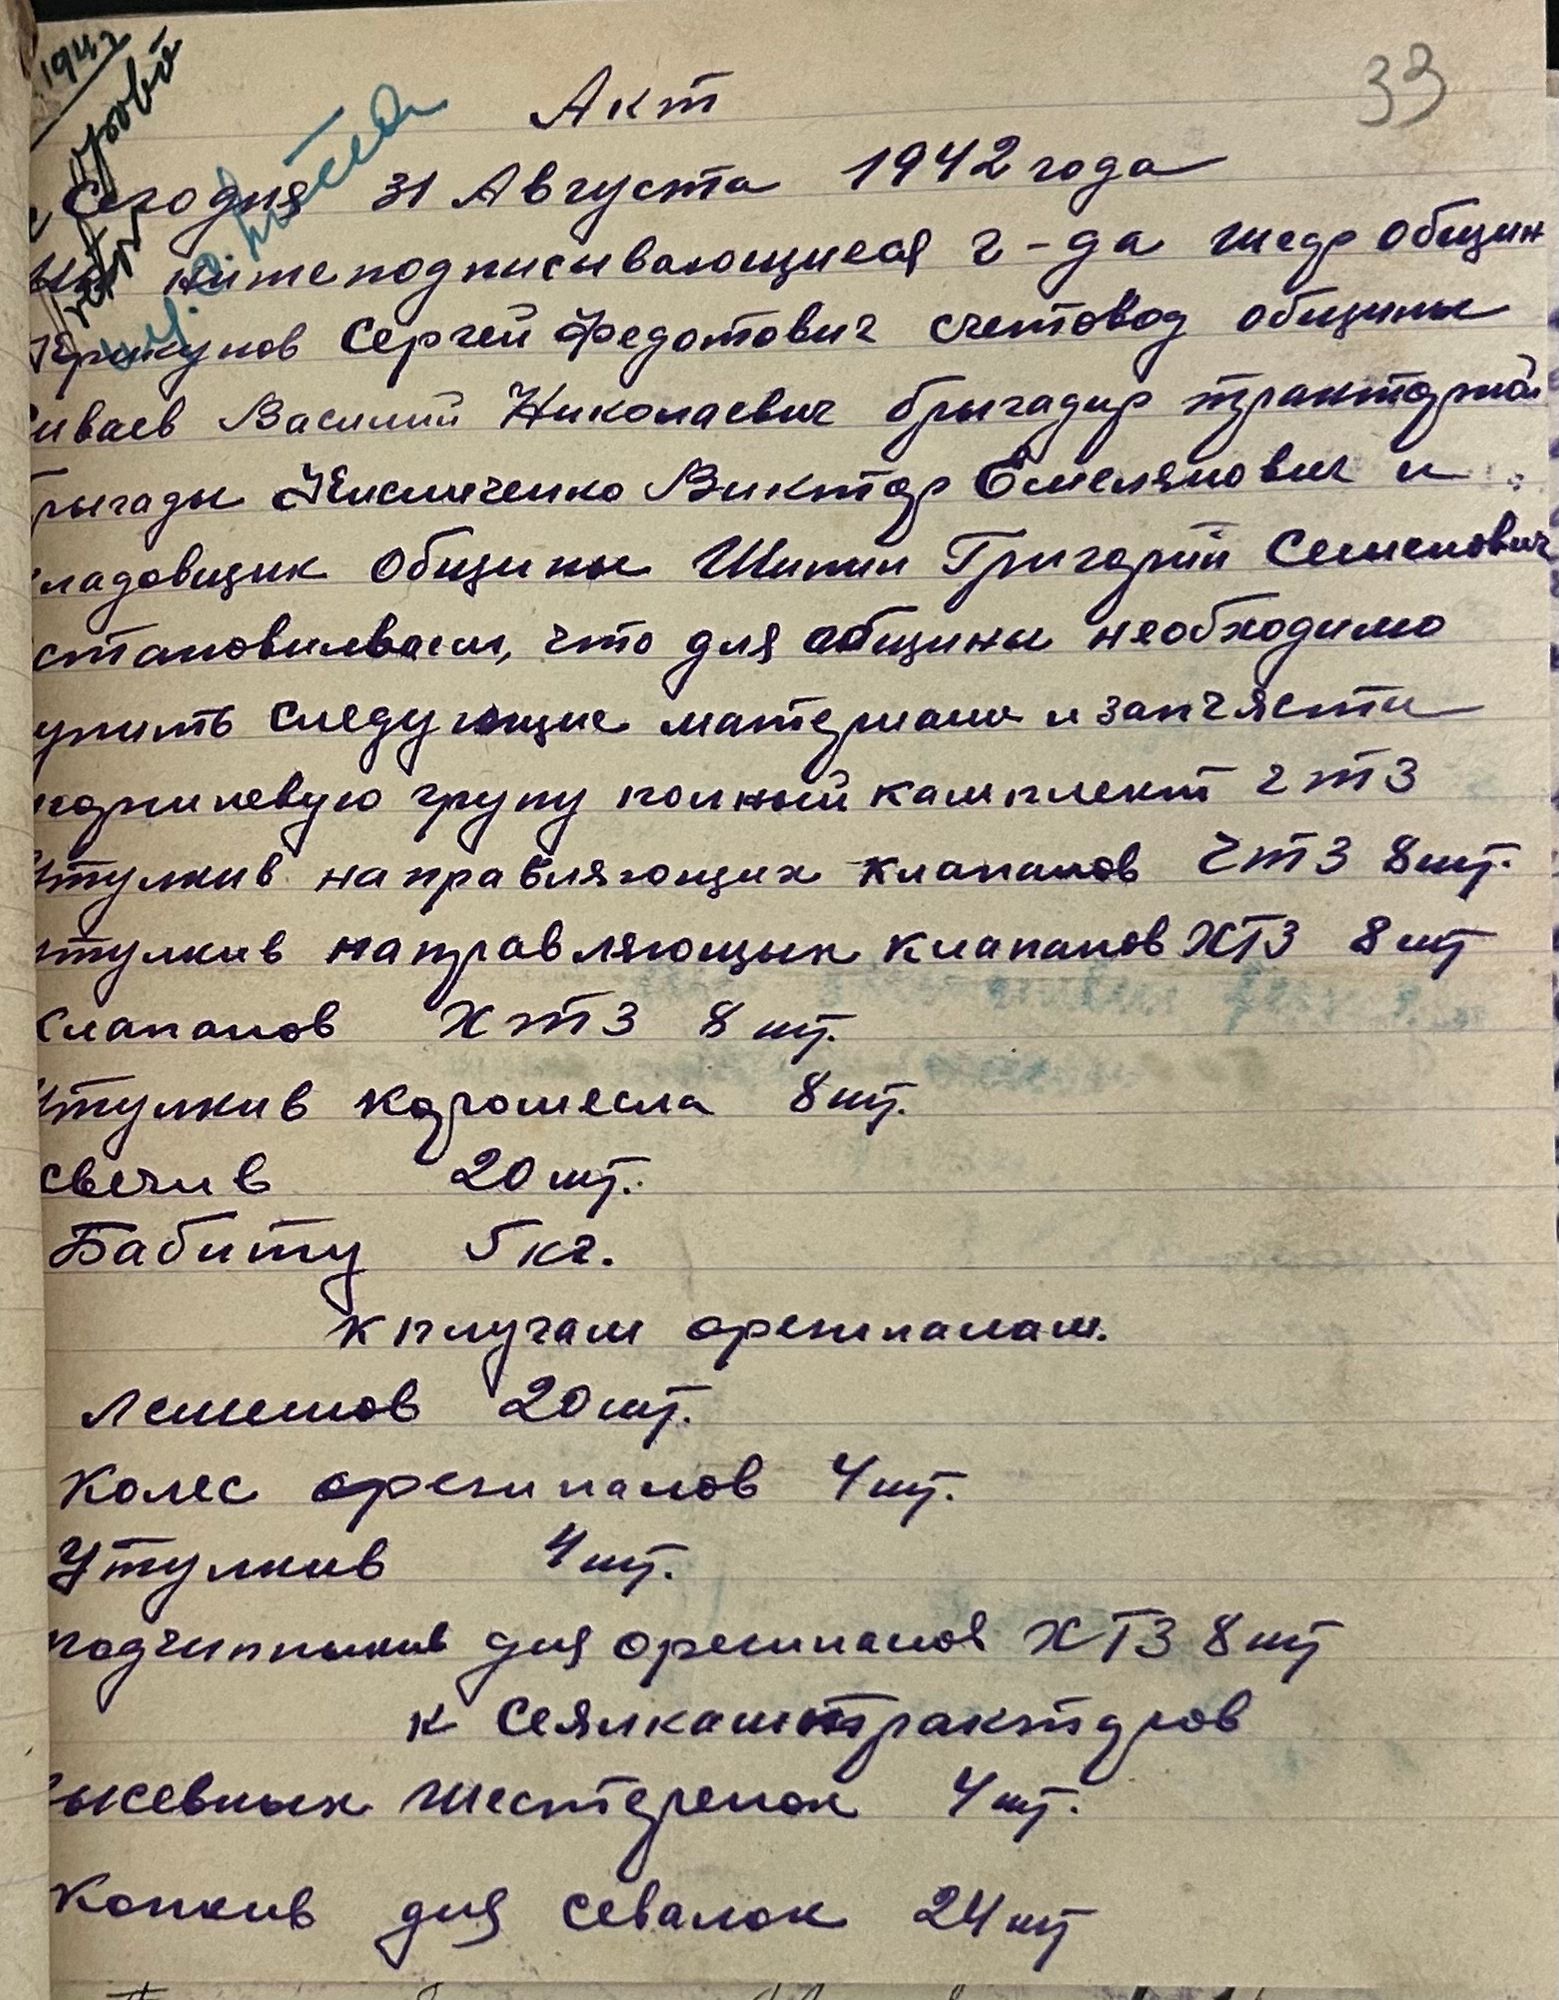 33
Акт
Сегодня 31 Августа 1942 года
Мы нижеподписывающиеся г-да общин
Сергей Федотович счетовод общины
иваев Василий Николаевич брыгадир тракторной
рыгады Виктор Емелянович и
ладовщик общины Шипил Григорий Семенович
становилваем, что для общины необходимо
следующие материали и запчясти
поршневую групу полный камплект ЧТЗ
утулкив направляющих клапанов ЧТЗ 8 шт.
утулкив направляющых клапанов ХТЗ 8 шт
клапанов ХТЗ 8 шт.
утулкив коромесла 8 шт.
свечив 20 шт.
Бабиту 5 кг.
к плугам орекпанам.
Лемешов 20 шт.
Колес орекпанов 4 шт.
Утулкив 4 шт.
подчипныкив для орекпанов ХТЗ 8 шт
к сеялкам тракторов
ысевных шестеренок 4 шт.
Копкив для севалок 24 шт